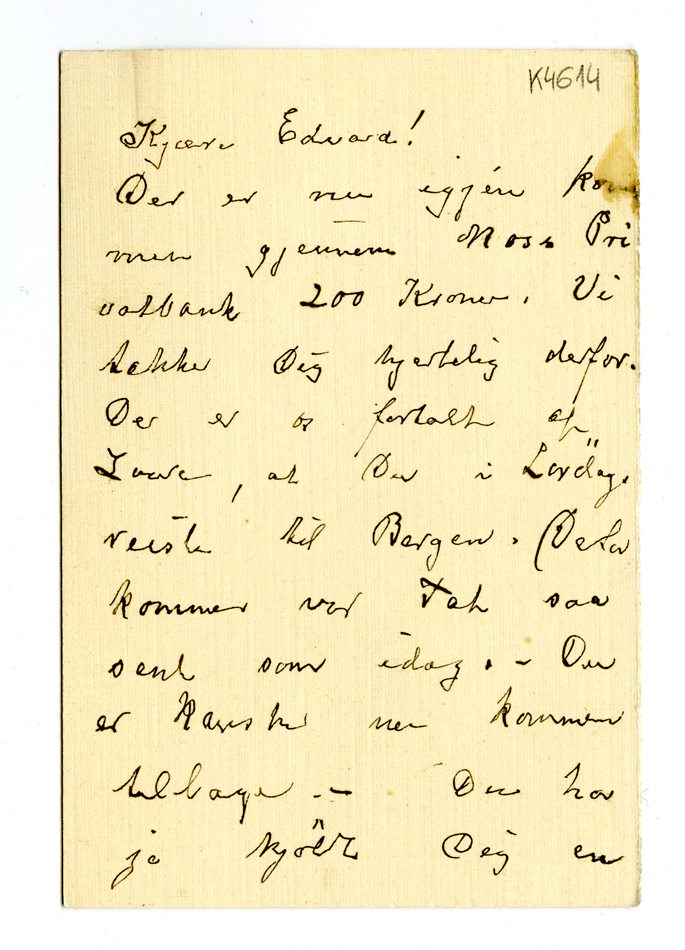 K4614
Kjære Edvard!
Der er nu igjén kom
men gjennem Moss Pri
vatbank 200 Kroner. Vi
takke Dig hjertelig derfor.
Der er os fortalt af
Laura, at Du i Lördag.
reiste til Bergen. (Defor
kommer vor Tak saa
sent som idag. – Du
er kanske nu kommen
tilbage. – Du har
ja kjöbt Dig en